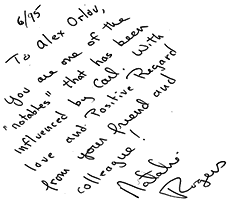 6/95
To Alex Orlov,
You are one of the
"notables" that has been
influenced by Carl. With
love and Positive Regard
from your friend and
colleague!
Natalie
Rogers